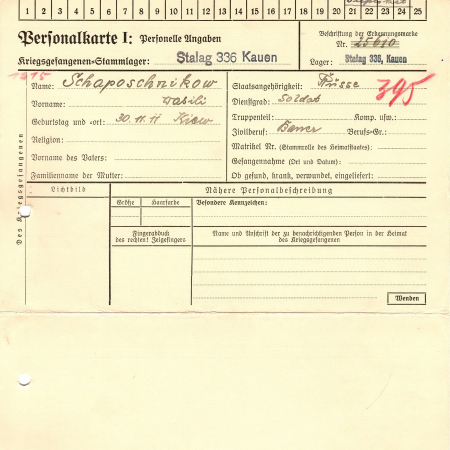 1 2 3 4 5 6 7 8 9 10 11 12 13 14 15 16 17 18 19 20 21 22 23 24 25
Personalkarte I: Personelle Angaben
Kriegsgefangenen-Stammlager: Stalag 336 Kauen
Beschriftung der Erkennungsmarke
Nr. 25610
Lager: Stalag 336, Kauen
Des Kriegsgefangenen
Name: Schaposchnikow
Vorname: Wasili
Geburtstag und -ort: 30.11.11 Kiew
Religion:
Vorname des Vaters:
Familienname der Mutter:
Staatsangehörigkeit: Russe
395
Dienstgrad: Soldat
Truppenteil: Komp. usw.:
Zivilberuf: Bauer Berufs-Gr.:
Matrikel Nr. (Stammrolle des Heimatstaates):
Gefangennahme (Ort und Datum):
Ob gesund, krank, verwundet, eingeliefert:
Lichtbild
Nähere Personalbeschreibung
Größe Haarfarbe
Besondere Kennzeichen:
Fingerabdruck
des rechten! Zeigefingers
Name und Anschrift der zu benachrichtigenden Person in der Heimat
des Kriegsgefangenen
Wenden